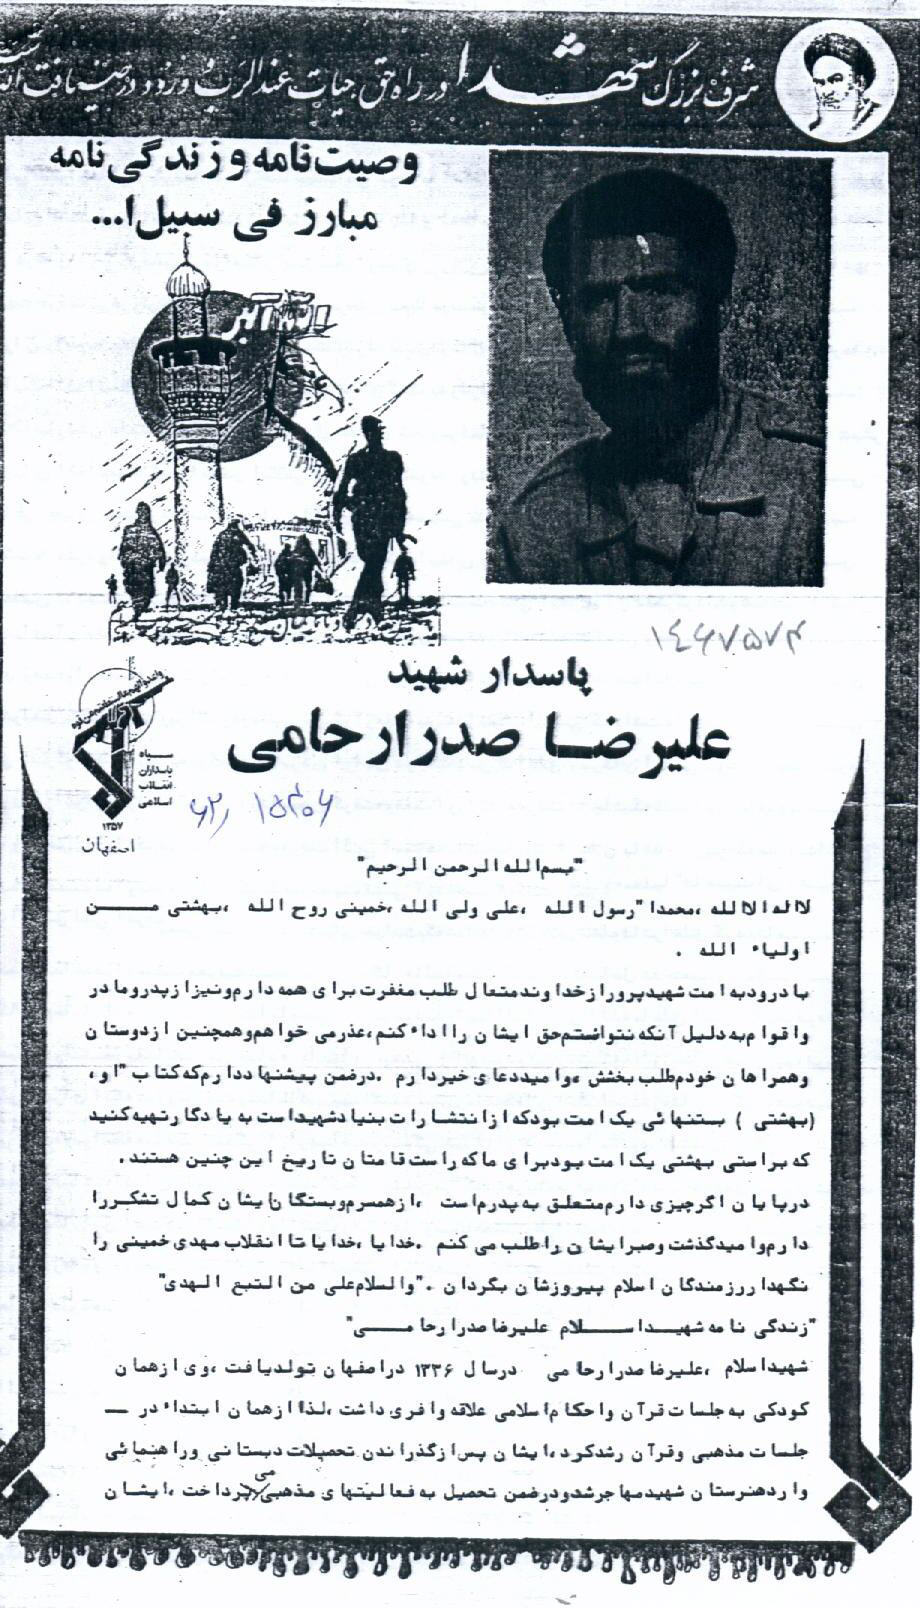 شرف بزرگ شهدا در راه حق حیات عندالرب و ورود در ضیافت الله است
وصیت‌نامه و زندگی‌نامه
مبارز فی سبیل ا...
الله اکبر
۱۴۶۷۵۷۴
پاسدار شهید
علیرضا صدرارحامی
سپاه
پاسداران
انقلاب
اسلامی
۱۳۵۷
اصفهان
"بسم الله الرحمن الرحیم"
لااله الاالله ،محمدا" رسول الله ،علی ولی الله ،خمینی روح الله ،بهشتی مــــن
اولیاء الله .
با درود به امت شهیدپرور از خداوند متعال طلب مغفرت برای همه دارم و نیز از پدر و مادر
و اقوام به دلیل آنکه نتوانستم حق ایشان را اداء کنم ،عذر می خواهم و همچنین از دوستان
و همراهان خودم طلب بخشش ،و امید دعای خیر دارم .در ضمن پیشنهاد دارم که کتاب "او ،
(بهشتی ) بتنهائی یک امت بود که از انتشارات بنیاد شهید است به یادگار تهیه کنید
که براستی بهشتی یک امت بود برای ما که راست قامتان تاریخ این چنین هستند .
در پایان اگر چیزی دارم متعلق به پدرم است ،از همسرم و بستگان ایشان کمال تشکر را
دارم و امید گذشت و صبر ایشان را طلب می کنم .خدایا ،خدایا تا انقلاب مهدی خمینی را
نگهدار رزمندگان اسلام پیروزشان بگردان ."والسلام علی من التبع الهدی"
"زندگی نامه شهید اســـلام علیرضا صدرارحامـــی"
شهید اسلام ،علیرضا صدرارحامی در سال ۱۳۳۶ در اصفهان تولد یافت ،وی از همان
کودکی به جلسات قرآن و احکام اسلامی علاقه وافری داشت ،لذا از همان ابتداء در ــ
جلسات مذهبی و قرآن رشد کرد ،ایشان پس از گذراندن تحصیلات دبستانی و راهنمائی
وارد هنرستان شهید مهاجر شد و در ضمن تحصیل به فعالیتهای مذهبی می پرداخت ،ایشان